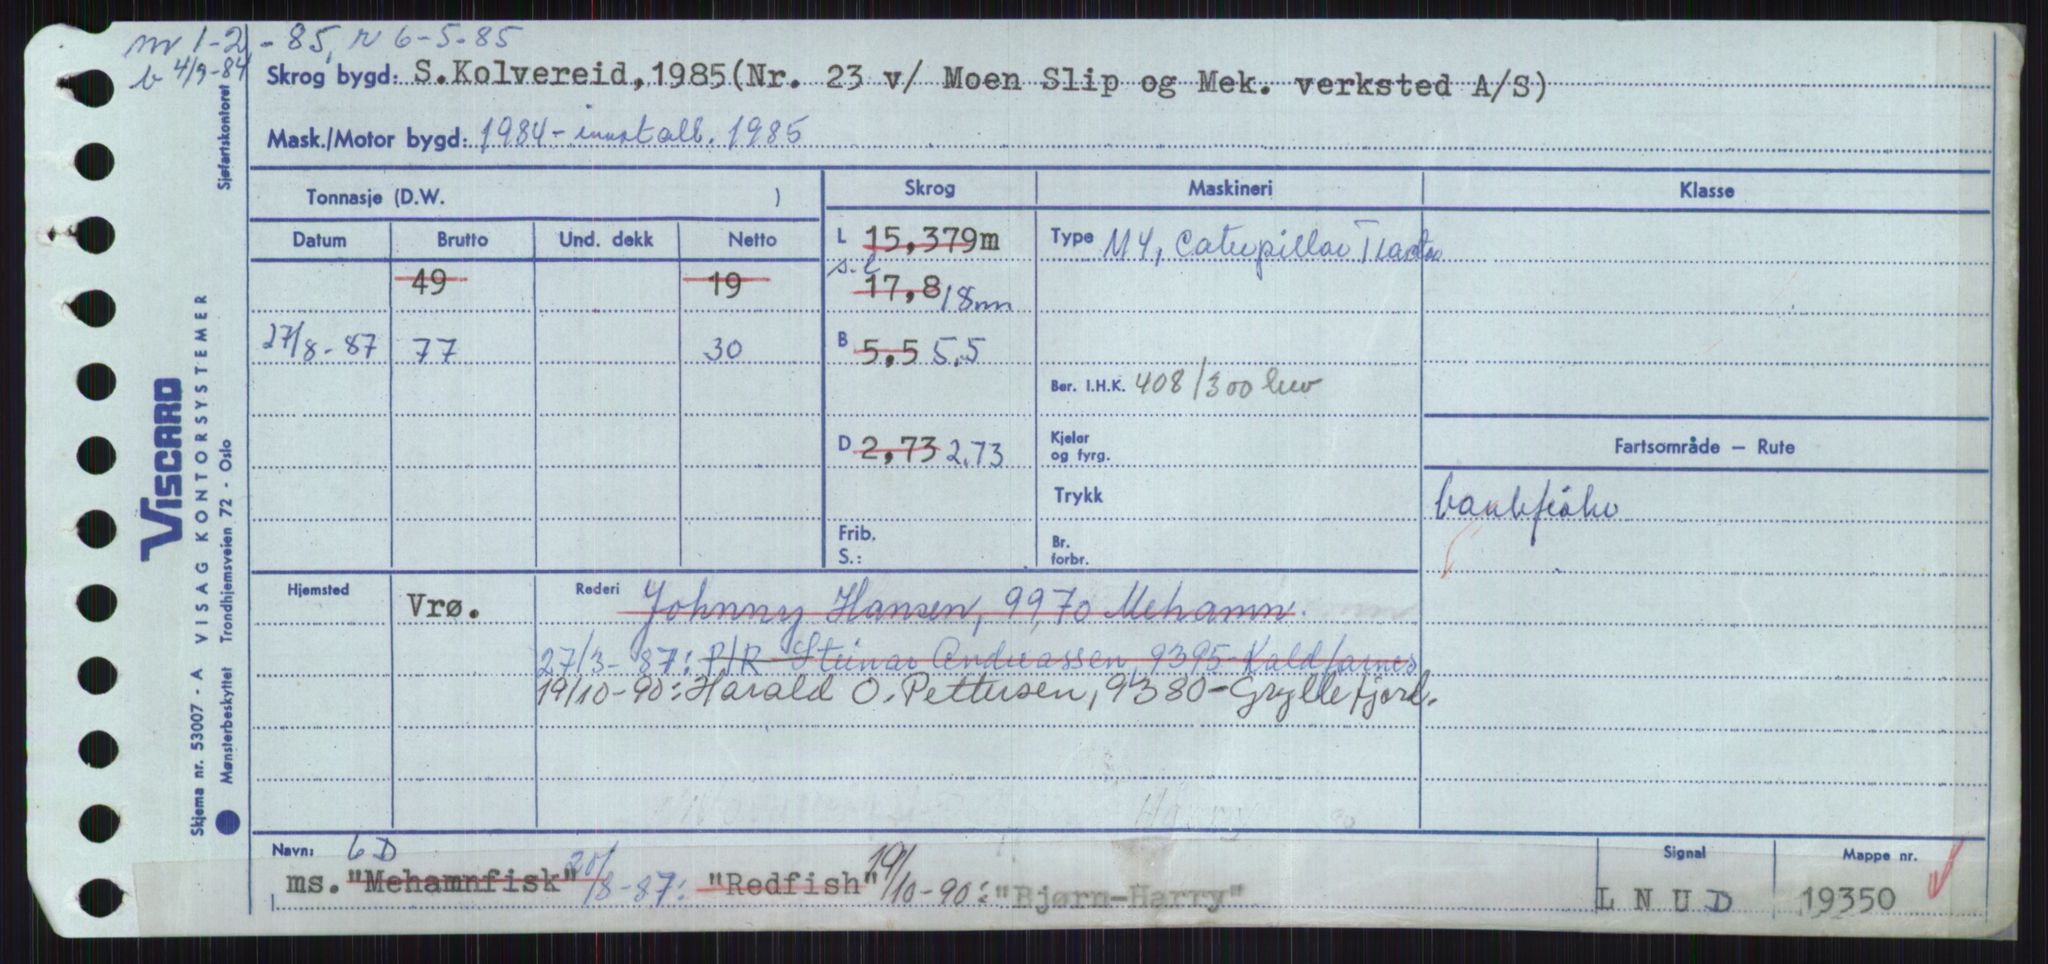 m 1-2-85, r 6-5-85
b 4/9-84
Skrog bygd: S.Kolvereid, 1985(Nr. 23 v/ Moen Slip og Mek. verksted A/S)
Mask./Motor bygd: 1984 - innstall. 1985
Sjøfartskontoret
Tonnasje (D.W. )
Skrog
Maskineri
Klasse
Datum Brutto Und. dekk Netto
L 15,379m
Type M4, Caterpillar Tractor
49 19
s.l 17,8 18m
27/8-87 77 30
B 5,5 5.5
Ber. I.H.K. 408/300 kw
D 2,73 2.73
Kjeler og fyrg.
Fartsområde — Rute
Trykk
bankfiske
Frib. S.:
Br. forbr.
Hjemsted Vrø.
Rederi Johnny Hansen, 9970 Mehamn.
27/3-87: P/R Steinar Andreassen, 9395-Kaldfarnes
19/10-90: Harald O. Pettersen, 9380-Gryllefjord.
Harry
Navn: 6D
Signal
Mappe nr.
ms. "Mehamnfisk" 20/8-87: "Redfish" 19/10-90: "Bjørn-Harry"
L N U D
19350
VISCARD
Skjema nr. 53007 - A VISAG KONTORSYSTEMER
Mønsterbeskyttet Trondhjemsveien 72 - Oslo